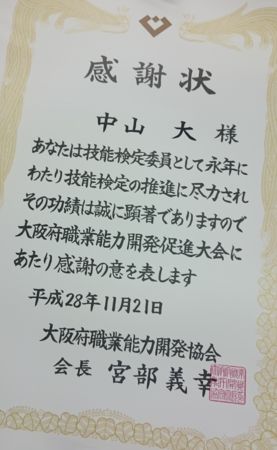 感謝状
中山 大 様
あなたは技能検定委員として永年に
わたり技能検定の推進に尽力され
その功績は誠に顕著でありますので
大阪府職業能力開発促進大会に
あたり感謝の意を表します
平成28年11月21日
大阪府職業能力開発協会
会長 宮部義幸